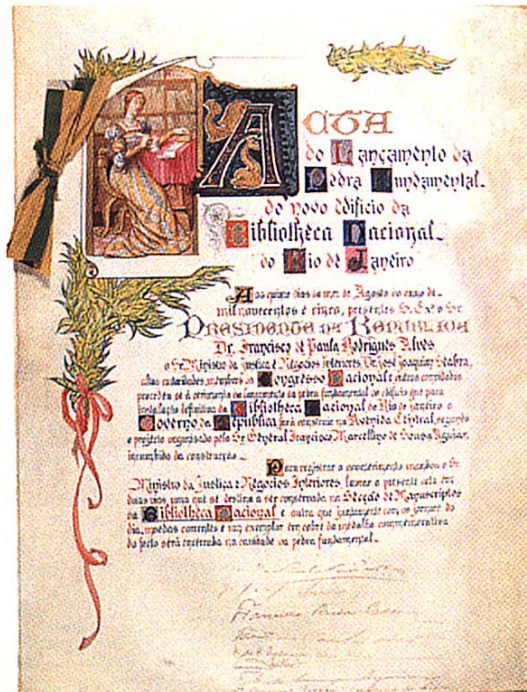 ACTA
do Lançamento da
Pedra Fundamental
do novo edificio da
Bibliotheca Nacional
do Rio de Janeiro
Aos quinze dias do mez de Agosto do anno de
mil novecentos e cinco, presentes S. Ex. o Sr.
PRESIDENTE DA REPUBLICA
Dr. Francisco de Paula Rodrigues Alves
o Sr. Ministro da Justiça e Negocios Interiores, Dr. José Joaquim Seabra,
altas autoridades, membros do Congresso Nacional e outros convidados
procedeu-se á ceremonia do lançamento da pedra fundamental do edificio que para
installação definitiva da Bibliotheca Nacional do Rio de Janeiro o
Governo da Republica fará construir na Avenida Central, segundo
o projecto organisado pelo Sr. General Francisco Marcellino de Souza Aguiar,
incumbido da construcção.
Para registrar o acontecimento mandou o Sr.
Ministro da Justiça e Negocios Interiores lavrar a presente acta em
duas vias, uma que se destina a ser conservada na Secção de Manuscriptos
da Bibliotheca Nacional e outra que juntamente com os jornaes do
dia, moedas correntes e um exemplar em cobre da medalha commemorativa
do facto será encerrada na cavidade da pedra fundamental.
Francisco Pereira